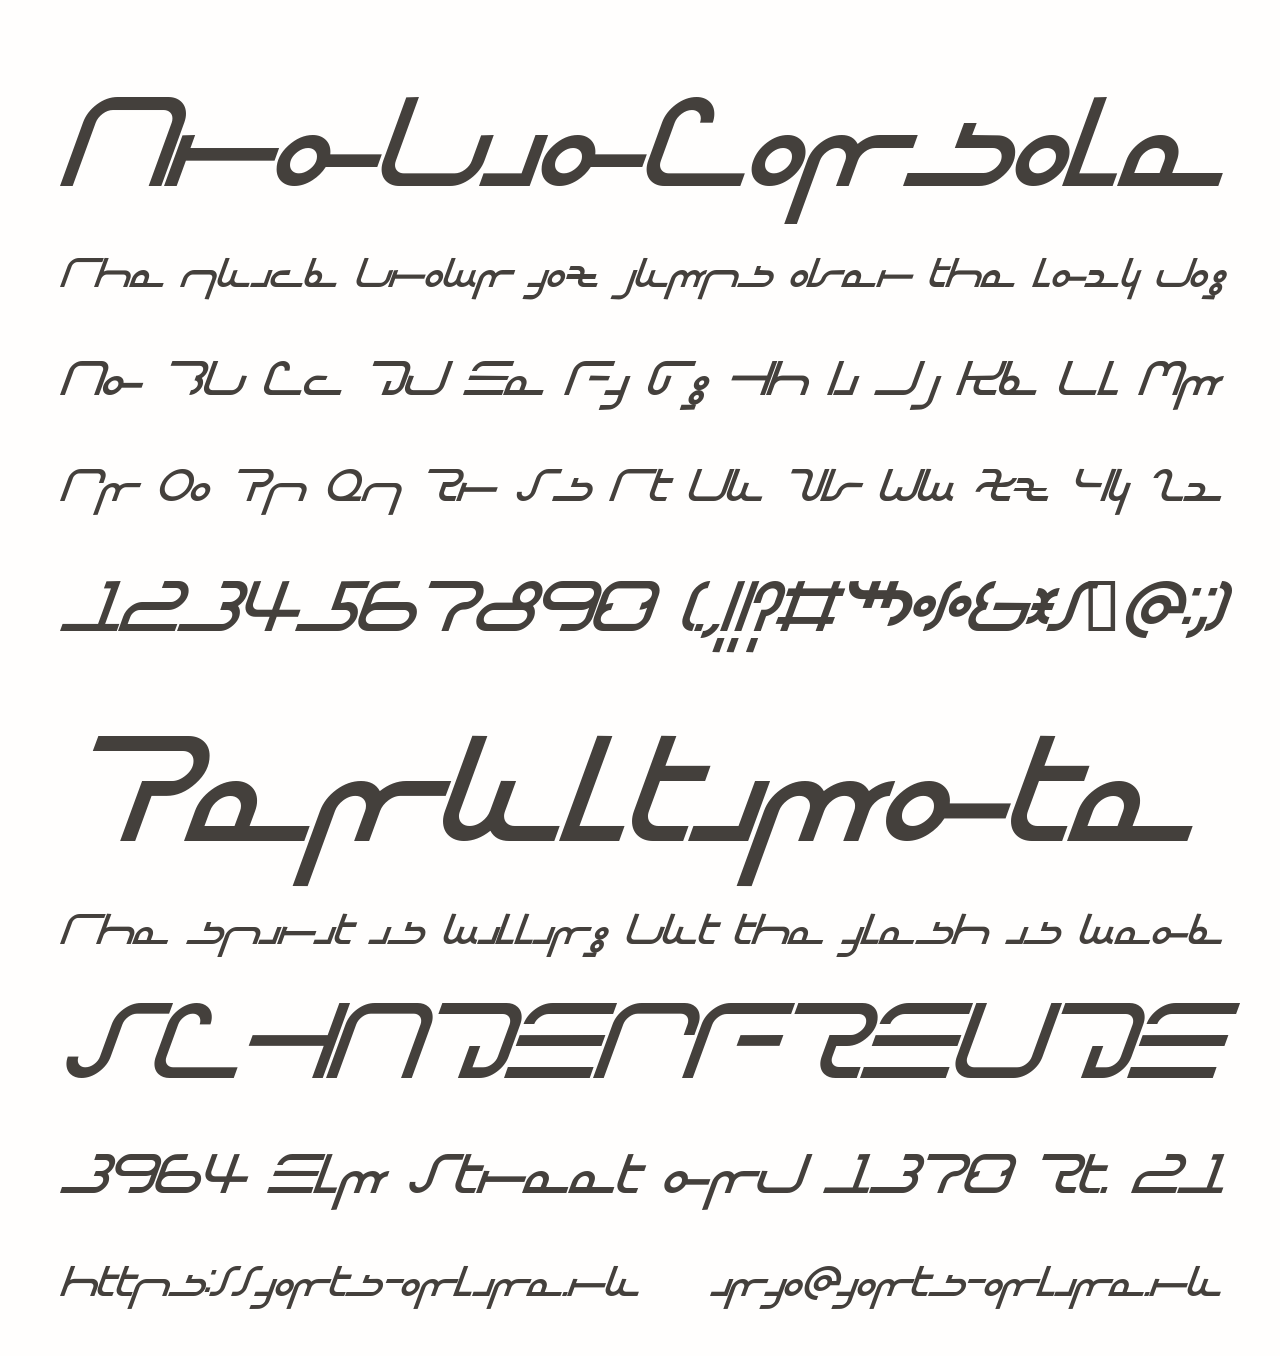 ArabiaConsole
The quick brown fox jumps over the lazy dog
Aa Bb Cc Dd Ee Ff Gg Hh Ii Jj Kk Ll Mm
Nn Oo Pp Qq Rr Ss Tt Uu Vv Ww Xx Yy Zz
1234567890
Penultimate
The spirit is willing but the flesh is weak
SCHADENFREUDE
3964 Elm Street and 1370 Rt. 21
https://fonts-online.ru info@fonts-online.ru